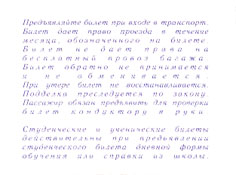 Предъявляйте билет при входе в транспорт.
Билет дает право проезда в течение
месяца, обозначенного на билете.
Билет не дает права на
бесплатный провоз багажа.
Билет обратно не принимается
и не обменивается.
При утере билет не восстанавливается.
Подделка преследуется по закону.
Пассажир обязан предъявить для проверки
билет кондуктору в руки.
Студенческие и ученические билеты
действительны при предъявлении
студенческого билета дневной формы
обучения или справки из школы.